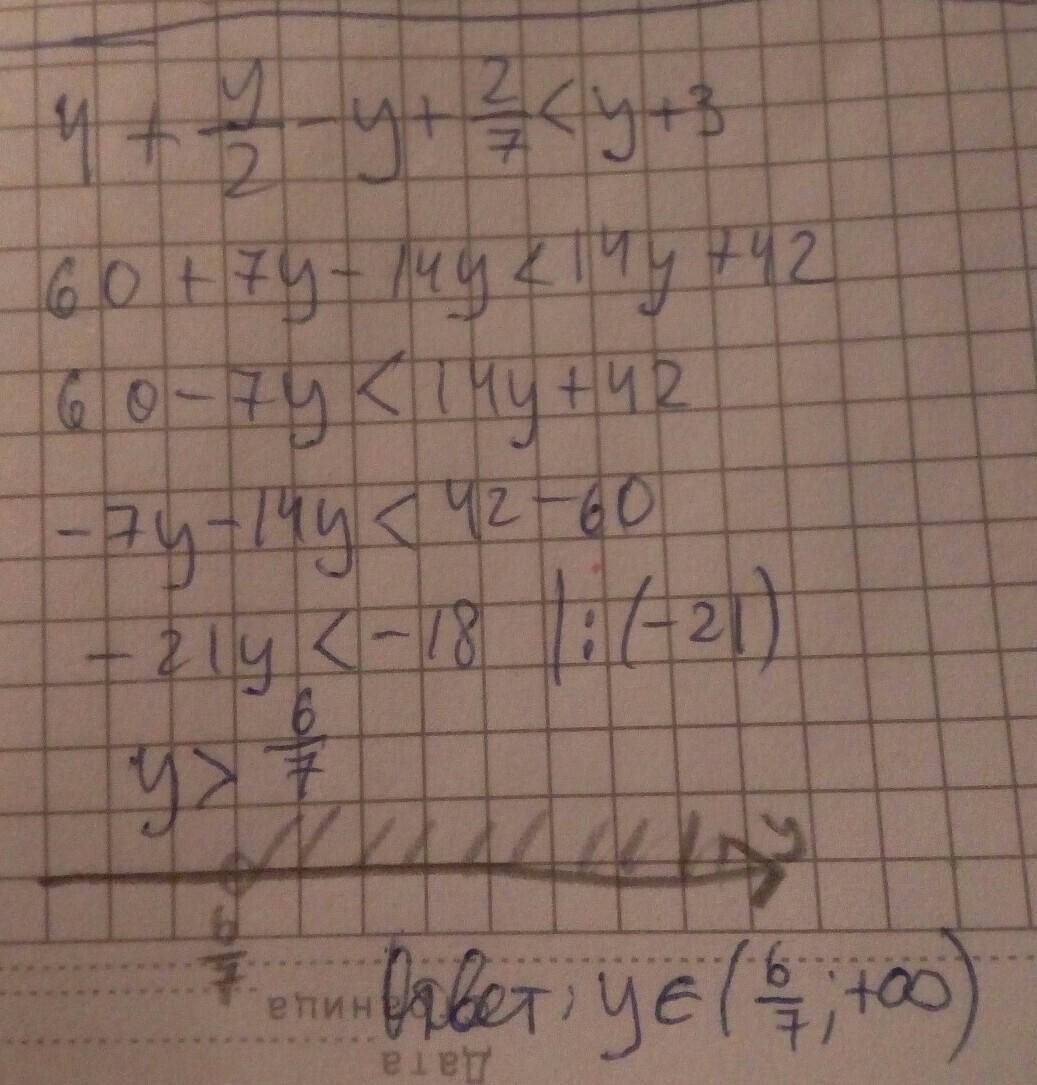 4 + y/2 - y + 2/7 < y + 3
60 + 7y - 14y < 14y + 42
60 - 7y < 14y + 42
-7y - 14y < 42 - 60
-21y < -18 |:(-21)
y > 6/7
y
6/7
Ответ: y ∈ (6/7; +∞)
Дата